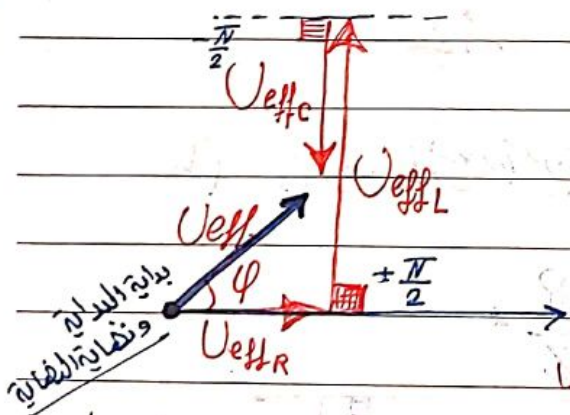 -π/2
UeffC
UeffL
Ueff
φ
+π/2
UeffR
بداية البداية
ونهاية النهاية